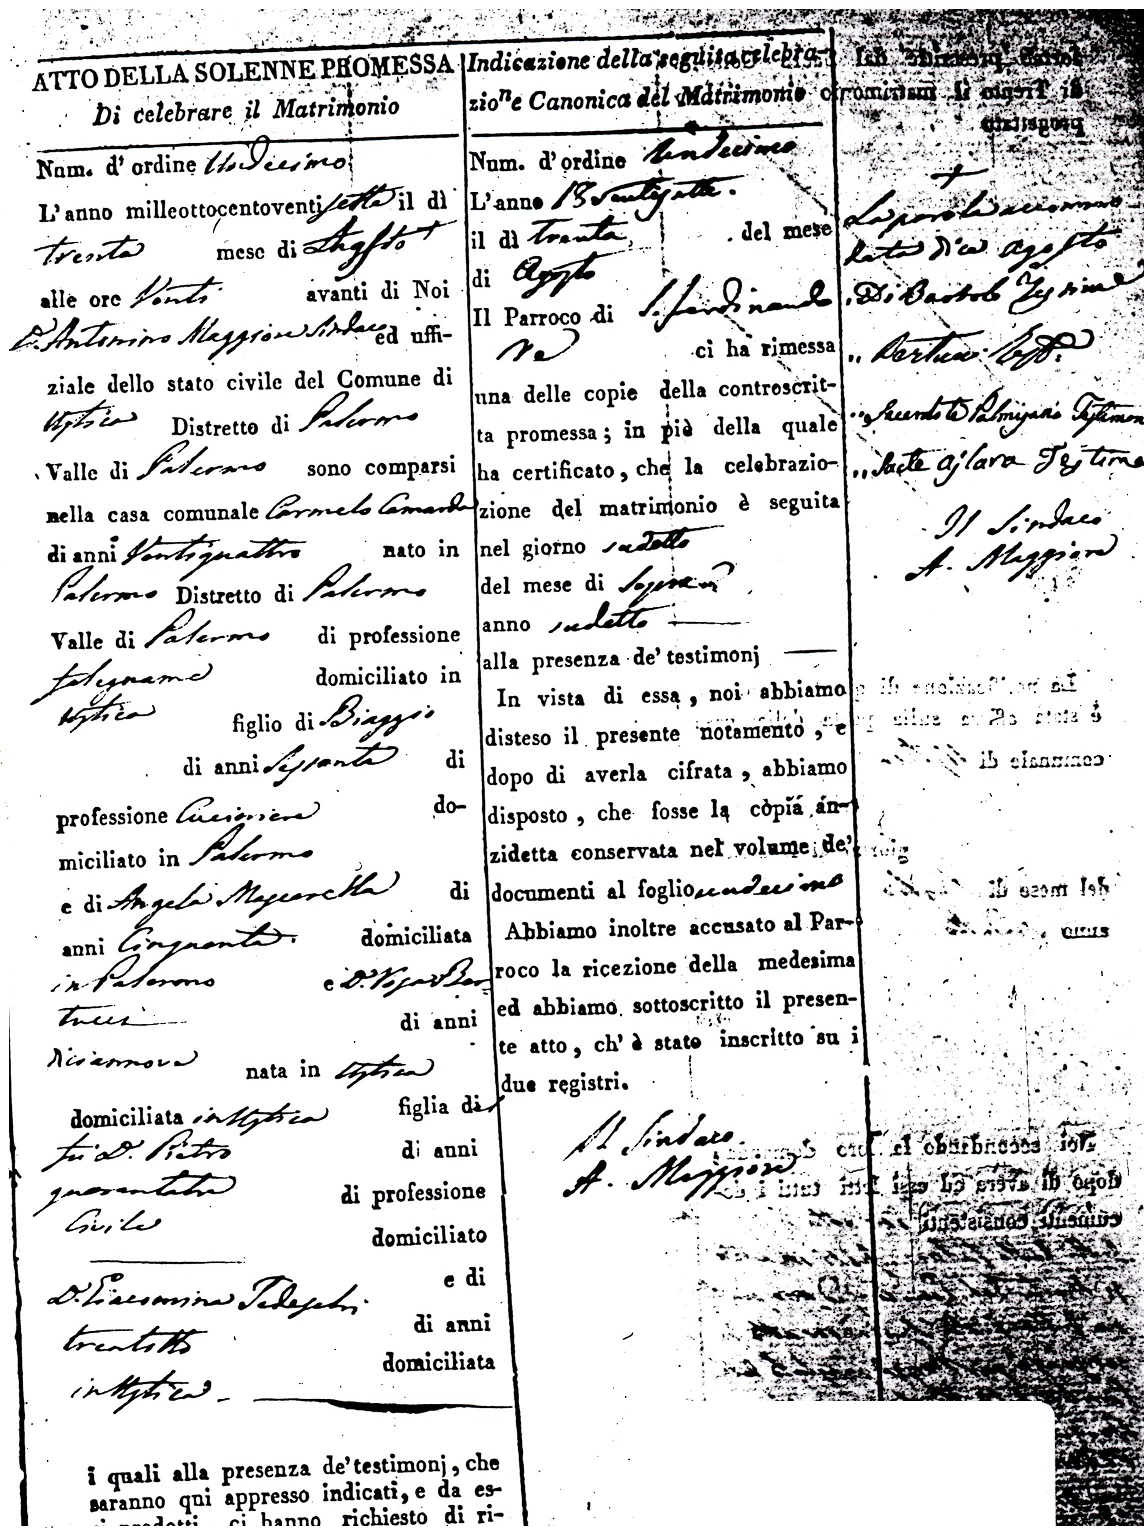 ATTO DELLA SOLENNE PROMESSA
Di celebrare il Matrimonio
Num. d' ordine Undecimo
L'anno milleottocentoventisette il dì
trenta mese di Augosto +
alle ore Venti avanti di Noi
D. Antonino Maggiore Sindaco ed uffi-
ziale dello stato civile del Comune di
Ustica Distretto di Palermo
Valle di Palermo sono comparsi
nella casa comunale Carmelo Camarda
di anni Ventiquattro nato in
Palermo Distretto di Palermo
Valle di Palermo di professione
falegname domiciliato in
Ustica figlio di Biaggio
di anni Sessanta di
professione Cuciniere do-
miciliato in Palermo
e di Angela di
anni Cinquanta domiciliata
in Palermo e D.
di anni
diciannove nata in Ustica
domiciliata in Ustica figlia di
fu D. Pietro di anni
quarantatre di professione
Civile domiciliato
e di
D. Giacomina Tedeschi di anni
trentotto domiciliata
in Ustica
i quali alla presenza de' testimonj, che
saranno qui appresso indicati, e da es-
ci hanno richiesto di ri-
Indicazione della seguita celebra-
zione Canonica del Matrimonio
Num. d' ordine Undecimo
L'anno 18 Ventisette.
il dì trenta del mese
di Agosto
Il Parroco di S. Ferdinando
Re ci ha rimessa
una delle copie della controscrit-
ta promessa; in piè della quale
ha certificato, che la celebrazio-
zione del matrimonio è seguita
nel giorno sudetto
del mese di
anno sudetto
alla presenza de' testimonj
In vista di essa, noi abbiamo
disteso il presente notamento, e
dopo di averla cifrata, abbiamo
disposto, che fosse la copia an-
zidetta conservata nel volume de'
documenti al foglio undecimo
Abbiamo inoltre accusato al Par-
roco la ricezione della medesima
ed abbiamo sottoscritto il presen-
te atto, ch' è stato inscritto su i
due registri.
Il Sindaco
A. Maggiore
+
La parola accommo-
data dice Agosto
Di Bartolo Testimone
Sacerdote Palmisano Testimon
Il Sindaco
A. Maggiore